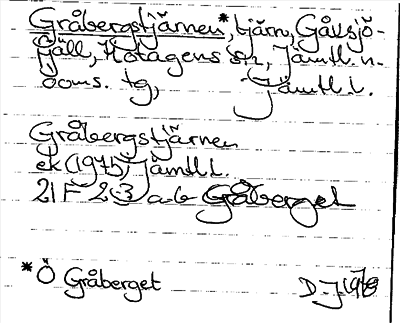 Gråbergstjärnen*, tjärn, Gåxsjö-
fjäll, Hotagens sn, Jämtl. n.
doms. tg, Jämtl l.
Gråbergstjärnen
ek (1975) Jämtl l.
21F 2-3 a-b Gråberget
*Ö Gråberget D-J 1978